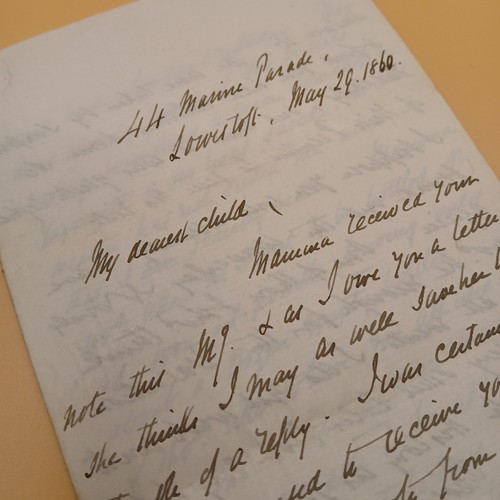 44 Marine Parade,
Lowestoft, May 29. 1860.
My dearest child,
Mamma received your
note this Mg. & as I owe you a letter
she thinks I may as well save her
of a reply. I was certain
to receive
from